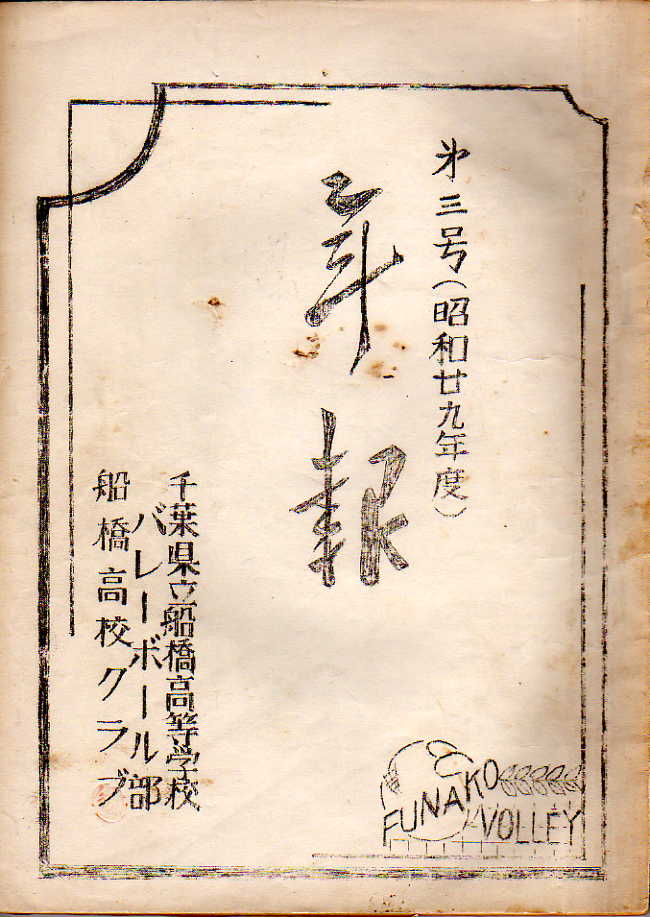 㐧三号（昭和廿九年度）
年報
千葉県立船橋高等学校
バレーボール部
船橋高校クラブ
FUNAKO
VOLLEY